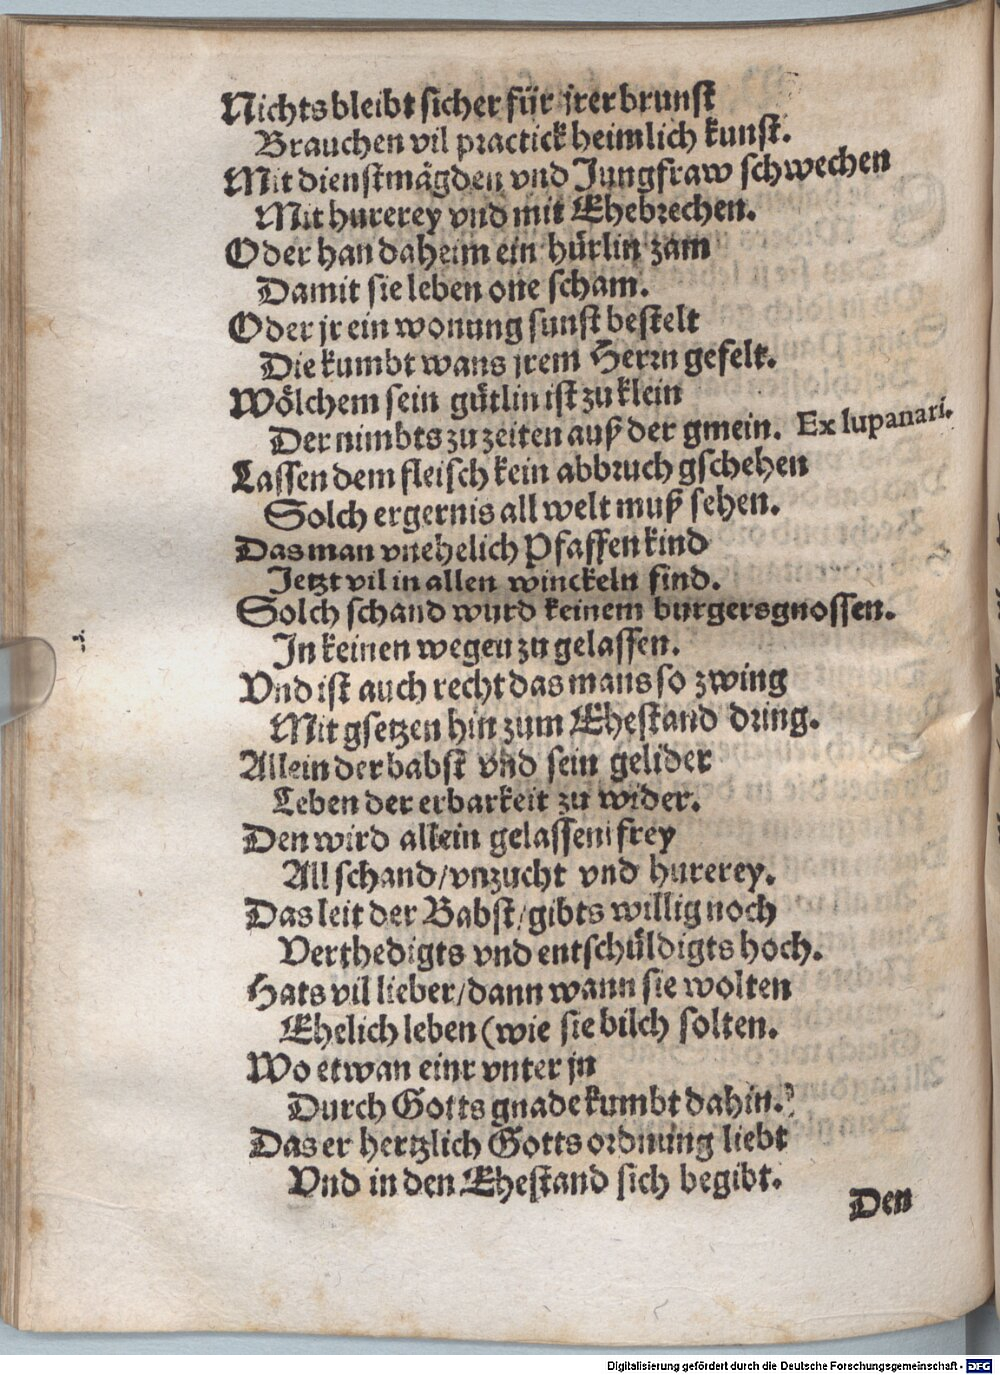 Nichts bleibt sicher für jrer brunst
Brauchen vil practick heimlich kunst.
Mit dienstmägden vnd Jungfraw schwechen
Mit hurerey vnd mit Ehebrechen.
Oder han daheim ein hürlin zam
Damit sie leben one scham.
Oder jr ein wonung sunst bestelt
Die kumbt wans jrem Herrn gefelt.
Wölchem sein gütlin ist zu klein
Der nimbts zu zeiten auß der gmein. Ex lupanari.
Lassen dem fleisch kein abbruch gschehen
Solch ergernis all welt muß sehen.
Das man vnehelich Pfaffen kind
Jetzt vil in allen winckeln find.
Solch schand wurd keinem burgersgnossen.
In keinen wegen zu gelassen.
Vnd ist auch recht das mans so zwing
Mit gsetzen hin zum Ehestand dring.
Allein der babst vnd sein gelider
Leben der erbarkeit zu wider.
Den wird allein gelassen frey
All schand/vnzucht vnd hurerey.
Das leit der Babst/gibts willig noch
Verthedigts vnd entschüldigts hoch.
Hats vil lieber/dann wann sie wolten
Ehelich leben (wie sie bilch solten.
Wo etwan einr vnter jn
Durch Gotts gnade kumbt dahin.
Das er hertzlich Gotts ordnung liebt
Vnd in den Ehestand sich begibt.
Den
Digitalisierung gefördert durch die Deutsche Forschungsgemeinschaft - DFG